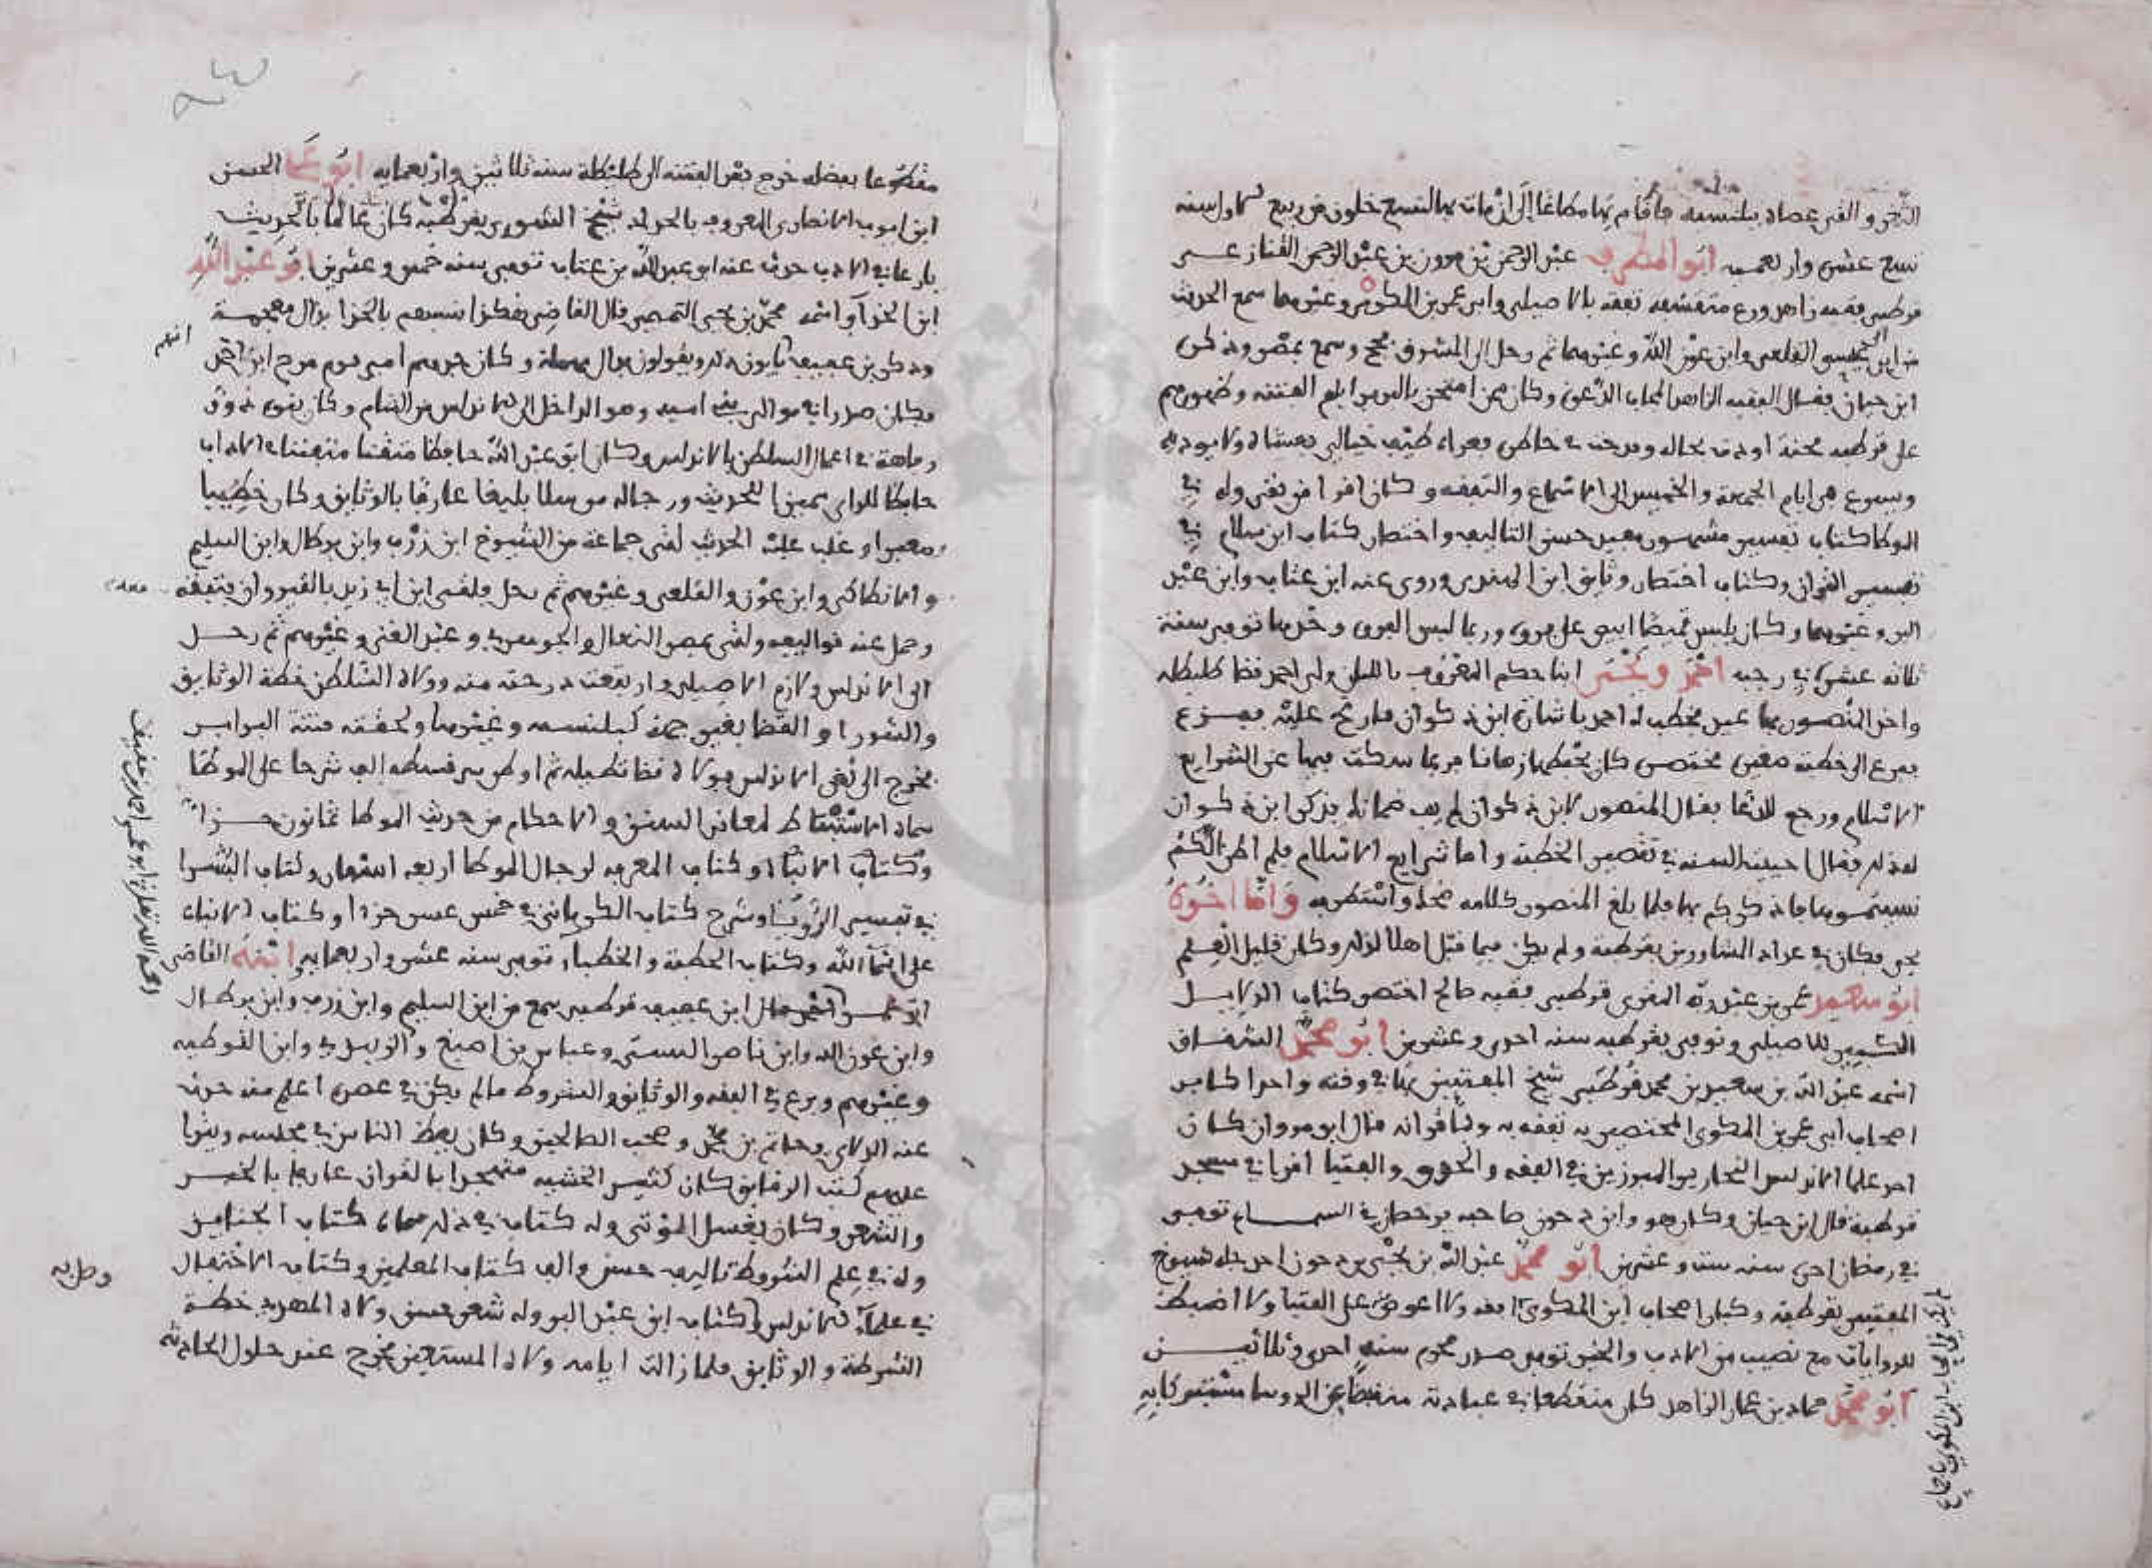 النجر والفى عصاه ببلنسيه فاقام بها مطاعا إلى ان مات بها لتسع خلون من ربيع الاول سنه
تسع عشرة واربعميه ابو المطرف عبد الرحمن بن مروان بن عبد الرحمن القنازعي
قرطبي فقيه زاهد ورع متقشف تفقه بالاصيلي وابي عمر بن المكوي وغيرهما سمع الحديث
من ابي عيسى والقلعي وابن عون الله وغيرهما ثم رحل الى المشرق فحج وسمع بمصر وذكره
ابن حيان فقال الفقيه الزاهد المجاب الدعوة وكان ممن امتحن بالبرابر ايام الفتنة وظهورهم
على قرطبه محنة اودت بحاله وقدحت في خاطره فعراه طيف خيالي يغشاه ولا يوديه
وسبوع هي ايام الجمعة والخميس الى الاسماع والتفقه وكان اقرا من بقي وله في
الموطا كتاب تفسير مشهور مفيد حسن التاليف واختصار كتاب ابن سلام في
تفسير القران وكتاب اختصار وثايق ابن الهندي وروى عنه ابن عتاب وابن عبد
البر وغيرهما وكان يلبس قميصا ابيض على فروة وربما لبس الفرو وحدها توفي سنة
ثلاثه عشرة في رجب احمد ويحيى ابنا حكم المعروف باللبان ولي احمد قضا طليطله
واخر المنصور بها عيد فخطب له احمد باشارة ابن ذكوان فارتج عليه ففزع
ففزع الى خطبة معنى مختصره كان يحفظها زمانا فربما سكت فيها عن الشرايع
الاسلام ورجع للدعا فقال المنصور لابن ذكوان لم يف ضمانك فذكر ابن ذكوان
له ذلك فقال احييت السنه في تقصير الخطبة واما شرايع الاسلام فلم اظن انكم
نسيتموها فاذكركم بها فلما بلغ المنصور كلامه ضحك واستظرفه واما اخوه
يحيى فكان في عداد المشاورين بقرطبة ولم يكن فيما قيل اهلا لذلك وكان قليل العلم
ابو سعيد عمر بن عبد ربه المقرى قرطبي فقيه صالح اختصر كتاب الدلايل
الكبير للاصيلي وتوفي بقرطبه سنه احدى وعشرين ابو محمد الشقاق
اسمه عبد الله بن سعيد بن محمد قرطبي شيخ المفتيين بها في وقته واحد اكابر
اصحاب ابي عمر بن المكوي المختصين به تفقه به وباقرانه قال ابو مروان كان
احد علما الاندلس النحارير المبرزين في الفقه والحذق والفتيا اقرا في مسجد
قرطبة قال ابن حيان وكان هو وابن دحون صاحبه يرحضان في السماع توفي
في رمضان احد سنه ست وعشرين ابو محمد عبد الله بن يحيى بن دحون احد جله شيوخ
المفتين بقرطبة وكبار اصحاب ابن المكوي افقه ولا اغوص على الفتيا ولا اضبط
للروايات مع نصيب من الادب والخبر توفي صدر محرم سنه احدى وثلاثين
ابو محمد حماد بن عمار الزاهد كان منقطعا في عبادته منقبضا عن الروسا مشتهر كابيه
مقطوعا بفضله خرج بعد الفتنه الى طليطلة سنه ثلاثين واربعمايه ابو علي الحسن
ابن ايوب الانصاري المعروف بالحداد شيخ الشورى بقرطبه كان عالما بالحديث
بارعا في الادب حدث عنه ابو عبد الله بن عتاب توفي سنه خمس وعشرين ابو عبد الله
ابن الحذاء واسمه محمد بن يحيى التميمي قال القاضي هكذا نسبهم بالحذا بذال معجمة
وذكر بن عفيف يابون ذلك ويقولون بدال مهملة وكان جدهم امير قوم مرج ابن احمد
فكان صدرا في موالي بني اميه وهو الداخل الى الاندلس من الشام وكان بنوه ذوي
نباهة في اعمال السلطان بالاندلس وكان ابو عبد الله حافظا متقنا متفننا في الاداب
حافظا للراي مميزا للحديث ورجاله مرسلا بليغا عارفا بالوثايق وكان خطيبا
مفوها وغلب عليه الحديث لقي جماعة من الشيوخ ابن زرب وابن برطال وابن السليم
والانطاكي وابن عون والقلعي وغيرهم ثم رحل فلقي ابن ابي زيد بالقيروان فتفقه
وحمل عنه تواليفه ولقي بمصر النعال والجوهري وعبد الغني وغيرهم ثم رحل
الى الاندلس ولازم الاصيلي وارتفعت درجته منه وولاه السلطن خطة الوثايق
والشورا والقضا بغير جهة كبلنسيه وغيرهما ولحقته فتنة البرابر
فخرج الى ثغر الاندلس فولاه قضا تطيله ثم اوطن سرقسطه الف شرحا على الموطا
سماه الاستنباط لمعاني السنن والاحكام من حديث الموطا ثمانون جزءا
وكتاب الانباه وكتاب المعرف لرجال الموطا اربعه اسفار وكتاب البشرا
في تفسير الرويا وشرح كتاب الكرماني في خمس عشر جزءا وكتاب الانباء
على اسماء الله وكتاب الخطبة والخطباء توفي سنه عشر واربعمايه ابنه القاضي
ابو عمر احمد قال ابن عفيف قرطبي سمع من ابن السليم وابن زرب وابن برطال
وابن عون الله وابن ناصر البستي وعباس بن اصبغ والزبيدي وابن القوطيه
وغيرهم وبرع في الفقه والوثايق والشروط ما لم يكن في عصره اعلم منه حدث
عنه الدلاي وحاتم بن محمد وصحب الصالحين وكان يعظ الناس في مجلسه ويقرا
عليهم كتب الرقايق كان كثير الخشيه متهجدا بالقران عارفا بالخبر
والشعر وكان يغسل الموتى وله كتاب في ذلك سماه كتاب الجنايز
وله في علم الشروط تاليف حسن والف كتاب المعلمين وكتاب الاختلال
في علماء الاندلس كتاب ابن عبد البر وله شعر حسن ولاه المهدي خطة
الشرطة والوثايق فلما زالت ايامه ولاه المستعين فخرج عند حلول الحادثه